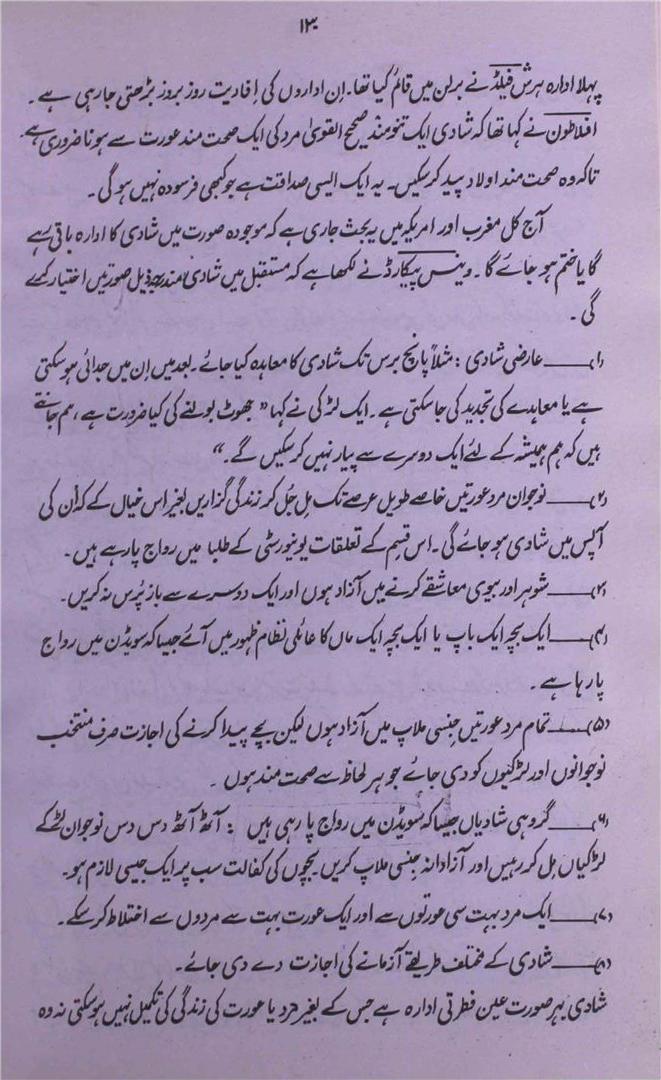 ۱۳
پہلا ادارہ ہرش فیلڈ نے برلن میں قائم کیا تھا۔ اِن اداروں کی اِفادیت روز بروز بڑھتی جا رہی ہے ۔
افلاطون نے کہا تھا کہ شادی ایک تنومند صحیح القویٰ مرد کی ایک صحت مند عورت سے ہونا ضروری ہے
تاکہ وہ صحت مند اولاد پید کر سکیں۔ یہ ایک ایسی صداقت ہے جو کبھی فرسودہ نہیں ہو گی ۔
آج کل مغرب اور امریکہ میں یہ بحث جاری ہے کہ موجودہ صورت میں شادی کا ادارہ باقی رہے
گا یا ختم ہو جائے گا ۔ وینس پیکارڈ نے لکھا ہے کہ مستقبل میں شادی مندرجہ ذیل صورتیں اختیار کرے
گی ۔
۱)ــــ عارضی شادی : مثلاً پانچ برس تک شادی کا معاہدہ کیا جائے۔ بعد میں اِن میں جدائی ہو سکتی
ہے یا معاہدے کی تجدید کی جا سکتی ہے ۔ ایک لڑکی نے کہا " جھوٹ بولنے کی کیا ضرورت ہے ، ہم جانتے
ہیں کہ ہم ہمیشہ کے لئے ایک دوسرے سے پیار نہیں کر سکیں گے ۔"
۲)ــــ نوجوان مرد عورتیں خاصے طویل عرصے تک مِل جُل کر زندگی گزاریں بغیر اس خیال کے کہ اُن کی
آپس میں شادی ہو جائے گی ۔ اس قسم کے تعلقات یونیورسٹی کے طلبا میں رواج پا رہے ہیں ۔
۳)ــــ شوہر اور بیوی معاشقے کرنے میں آزاد ہوں اور ایک دوسرے سے باز پُرس نہ کریں۔
۴)ــــ ایک بچہ ایک باپ یا ایک بچہ ایک ماں کا عائلی نظام ظہور میں آئے جیسا کہ سویڈن میں رواج
پا رہا ہے ۔
۵)ــــ تمام مرد عورتیں جنسی ملاپ میں آزاد ہوں لیکن بچے پیدا کرنے کی اجازت صرف منتخب
نوجوانوں اور لڑکیوں کو دی جائے جو ہر لحاظ سے صحت مند ہوں ۔
۶)ــــ گروہی شادیاں جیسا کہ سویڈن میں رواج پا رہی ہیں : آٹھ آٹھ دس دس نوجوان لڑکے
لڑکیاں مِل کر رہیں اور آزادانہ جنسی ملاپ کریں بچوں کی کفالت سب پر ایک جیسی لازم ہو۔
۷)ــــ ایک مرد بہت سی عورتوں سے اور ایک عورت بہت سے مردوں سے اختلاط کر سکے ۔
۸)ــــ شادی کے مختلف طریقے آزمانے کی اجازت دے دی جائے ۔
شادی بہر صورت عین فطرتی ادارہ ہے جس کے بغیر مرد یا عورت کی زندگی کی تکمیل نہیں ہو سکتی نہ وہ